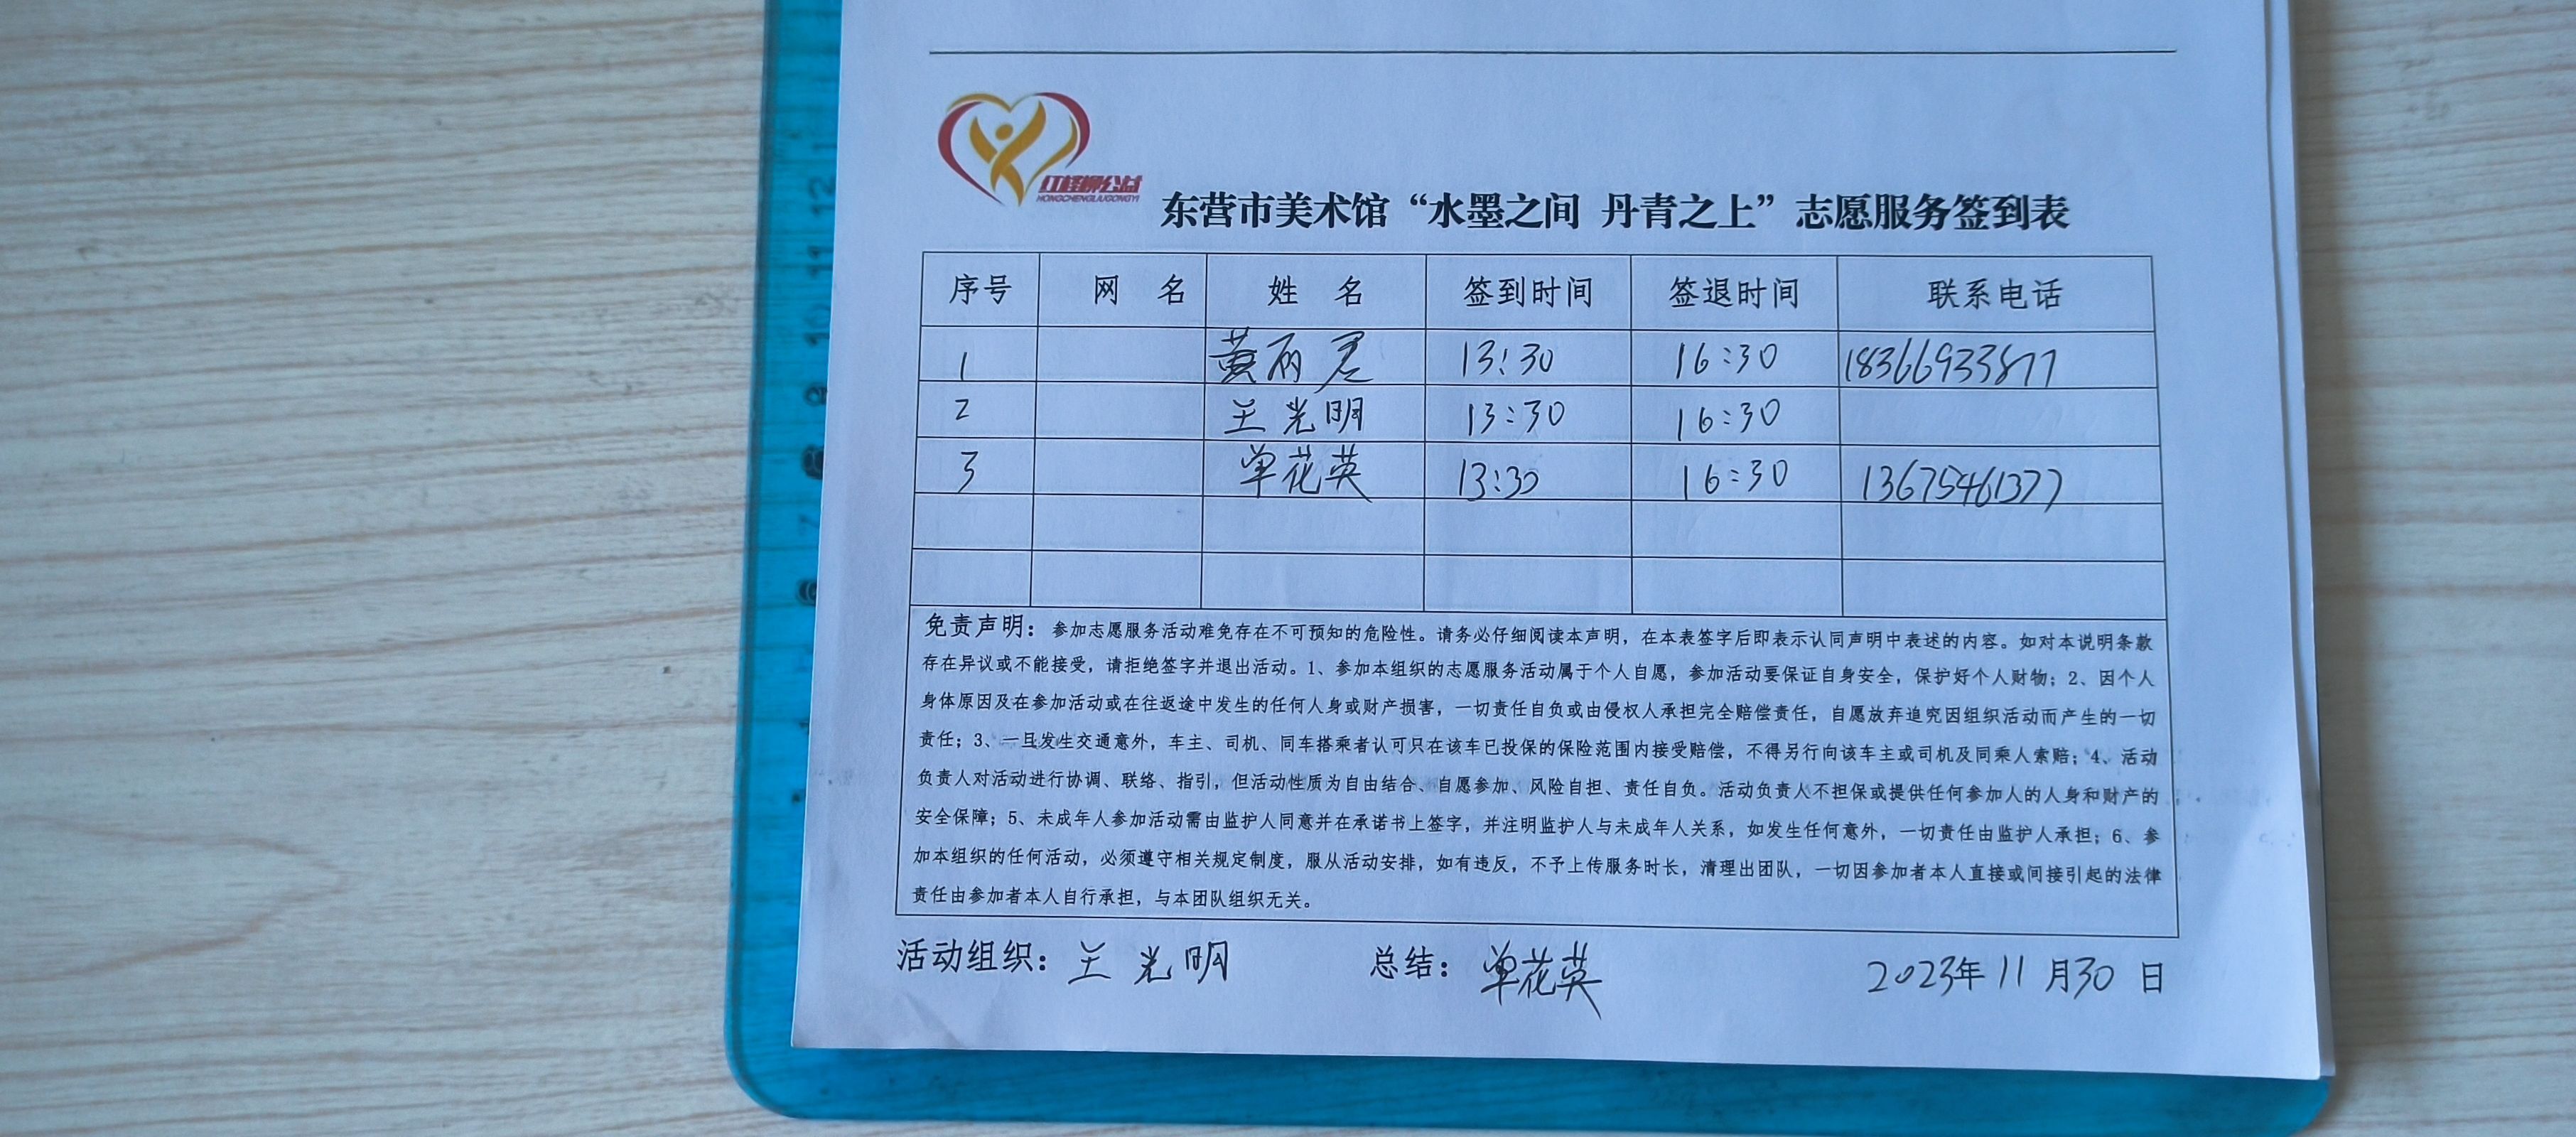 红柽柳公益
HONGCHENGLIUGONGYI
东营市美术馆“水墨之间 丹青之上”志愿服务签到表
序号 网 名 姓 名 签到时间 签退时间 联系电话
1 黄丽君 13:30 16:30 18366933877
2 王光明 13:30 16:30
3 单花英 13:30 16:30 13675461377
免责声明：参加志愿服务活动难免存在不可预知的危险性。请务必仔细阅读本声明，在本表签字后即表示认同声明中表述的内容。如对本说明条款
存在异议或不能接受，请拒绝签字并退出活动。1、参加本组织的志愿服务活动属于个人自愿，参加活动要保证自身安全，保护好个人财物；2、因个人
身体原因及在参加活动或在往返途中发生的任何人身或财产损害，一切责任自负或由侵权人承担完全赔偿责任，自愿放弃追究因组织活动而产生的一切
责任；3、一旦发生交通意外，车主、司机、同车搭乘者认可只在该车已投保的保险范围内接受赔偿，不得另行向该车主或司机及同乘人索赔；4、活动
负责人对活动进行协调、联络、指引，但活动性质为自由结合、自愿参加、风险自担、责任自负。活动负责人不担保或提供任何参加人的人身和财产的
安全保障；5、未成年人参加活动需由监护人同意并在承诺书上签字，并注明监护人与未成年人关系，如发生任何意外，一切责任由监护人承担；6、参
加本组织的任何活动，必须遵守相关规定制度，服从活动安排，如有违反，不予上传服务时长，清理出团队，一切因参加者本人直接或间接引起的法律
责任由参加者本人自行承担，与本团队组织无关。
活动组织：王光明 总结：单花英 2023年11月30日
12
11
10
9
8
7
6